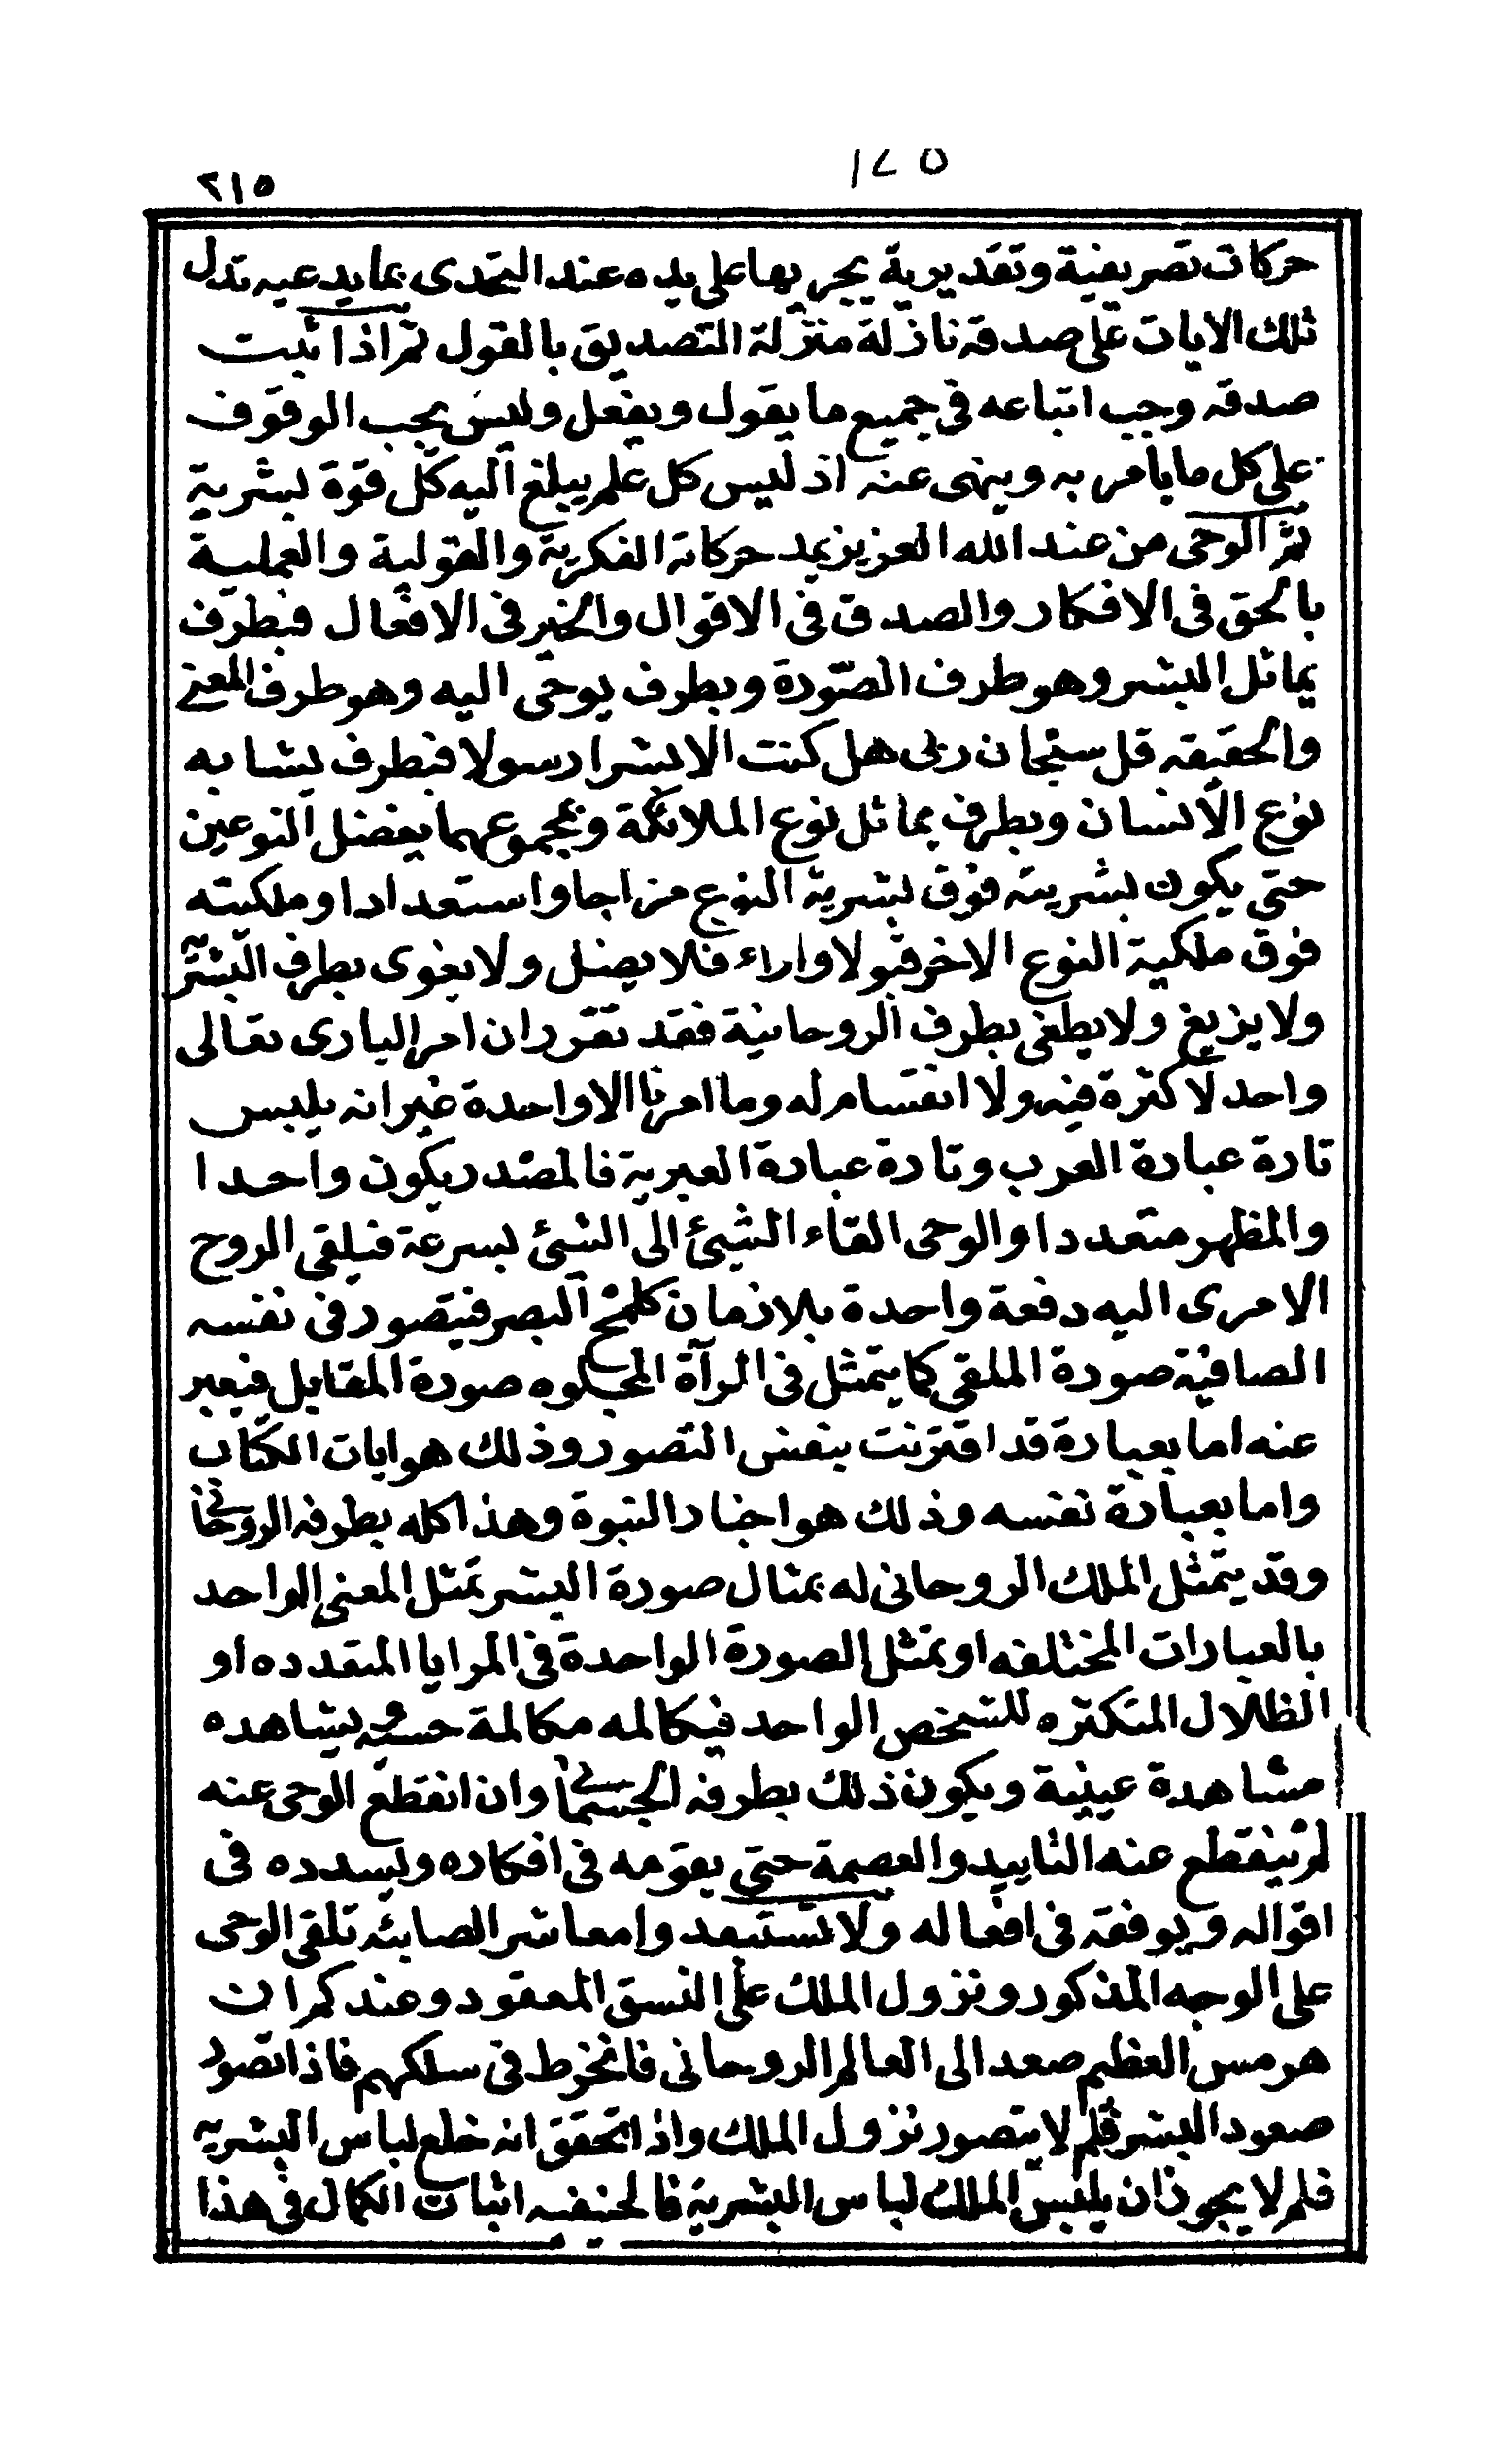 ١٢٥
٢١٥
حركات تصريفية وتقديرية يجريها على يده عند التحدى بما يدعيه تدل
تلك الايات على صدقه نازلة منزلة التصديق بالقول ثم اذا ثبت
صدقه وجب اتباعه فى جميع ما يقول ويفعل وليس يجب الوقوف
على كل ما يامر به وينهى عنه اذ ليس كل علم يبلغ اليه كل قوة بشرية
ثم الوحى من عند الله العزيز يمد حركاته الفكرية والقولية والعملية
بالحق فى الافكار والصدق فى الاقوال والخير فى الافعال فبطرف
يماثل البشر وهو طرف الصورة وبطرف يوحى اليه وهو طرف المعنى
والحقيقه قل سبحان ربى هل كنت الا بشرا رسولا فبطرف يشابه
نوع الانسان وبطرف يماثل نوع الملائكة وبمجموعهما يفضل النوعين
حتى يكون بشريته فوق بشرية النوع مزاجا واستعدادا وملكيته
فوق ملكية النوع الاخر قبولا واداء فلا يضل ولا يغوى بطرف البشرية
ولا يزيغ ولا يطغى بطرف الروحانية فقد تقرر ان امر البارى تعالى
واحد لا كثرة فيه ولا انقسام له وما امرنا الا واحدة غير انه يلبس
تارة عبارة العرب وتارة عبارة العبرية فالمصدر يكون واحدا
والمظهر متعددا والوحى القاء الشيئ الى الشيئ بسرعة فيلقى الروح
الامرى اليه دفعة واحدة بلا زمان كلمح البصر فيتصور فى نفسه
الصافية صورة الملقى كما يتمثل فى المرآة المجلوه صورة المقابل فيعبر
عنه اما بعبارة قد اقترنت بنفس التصور وذلك هو ايات الكتاب
واما بعبارة نفسه وذلك هو اخبار النبوة وهذا كله بطرفه الروحانى
وقد يتمثل الملك الروحانى له بمثال صورة البشر تمثل المعنى الواحد
بالعبارات المختلفه او تمثل الصورة الواحدة فى المرايا المتعدده او
الظلال المتكثره للشخص الواحد فيكالمه مكالمة حسيه ويشاهده
مشاهدة عينية ويكون ذلك بطرفه الجسمانى وان انقطع الوحى عنه
لم ينقطع عنه التاييد والعصمة حتى يقومه فى افكاره ويسدده فى
اقواله ويوفقه فى افعاله ولا تستبعدوا معاشر الصابئه تلقى الوحى
على الوجه المذكور ونزول الملك على النسق المعقود وعندكم ان
هرمس العظيم صعد الى العالم الروحانى فانخرط فى سلكهم فاذا تصور
صعود البشر فلم لا يتصور نزول الملك واذا تحقق انه خلع لباس البشريه
فلم لا يجوز ان يلبس الملك لباس البشرية فالحنيفيه اثبات الكمال فى هذا